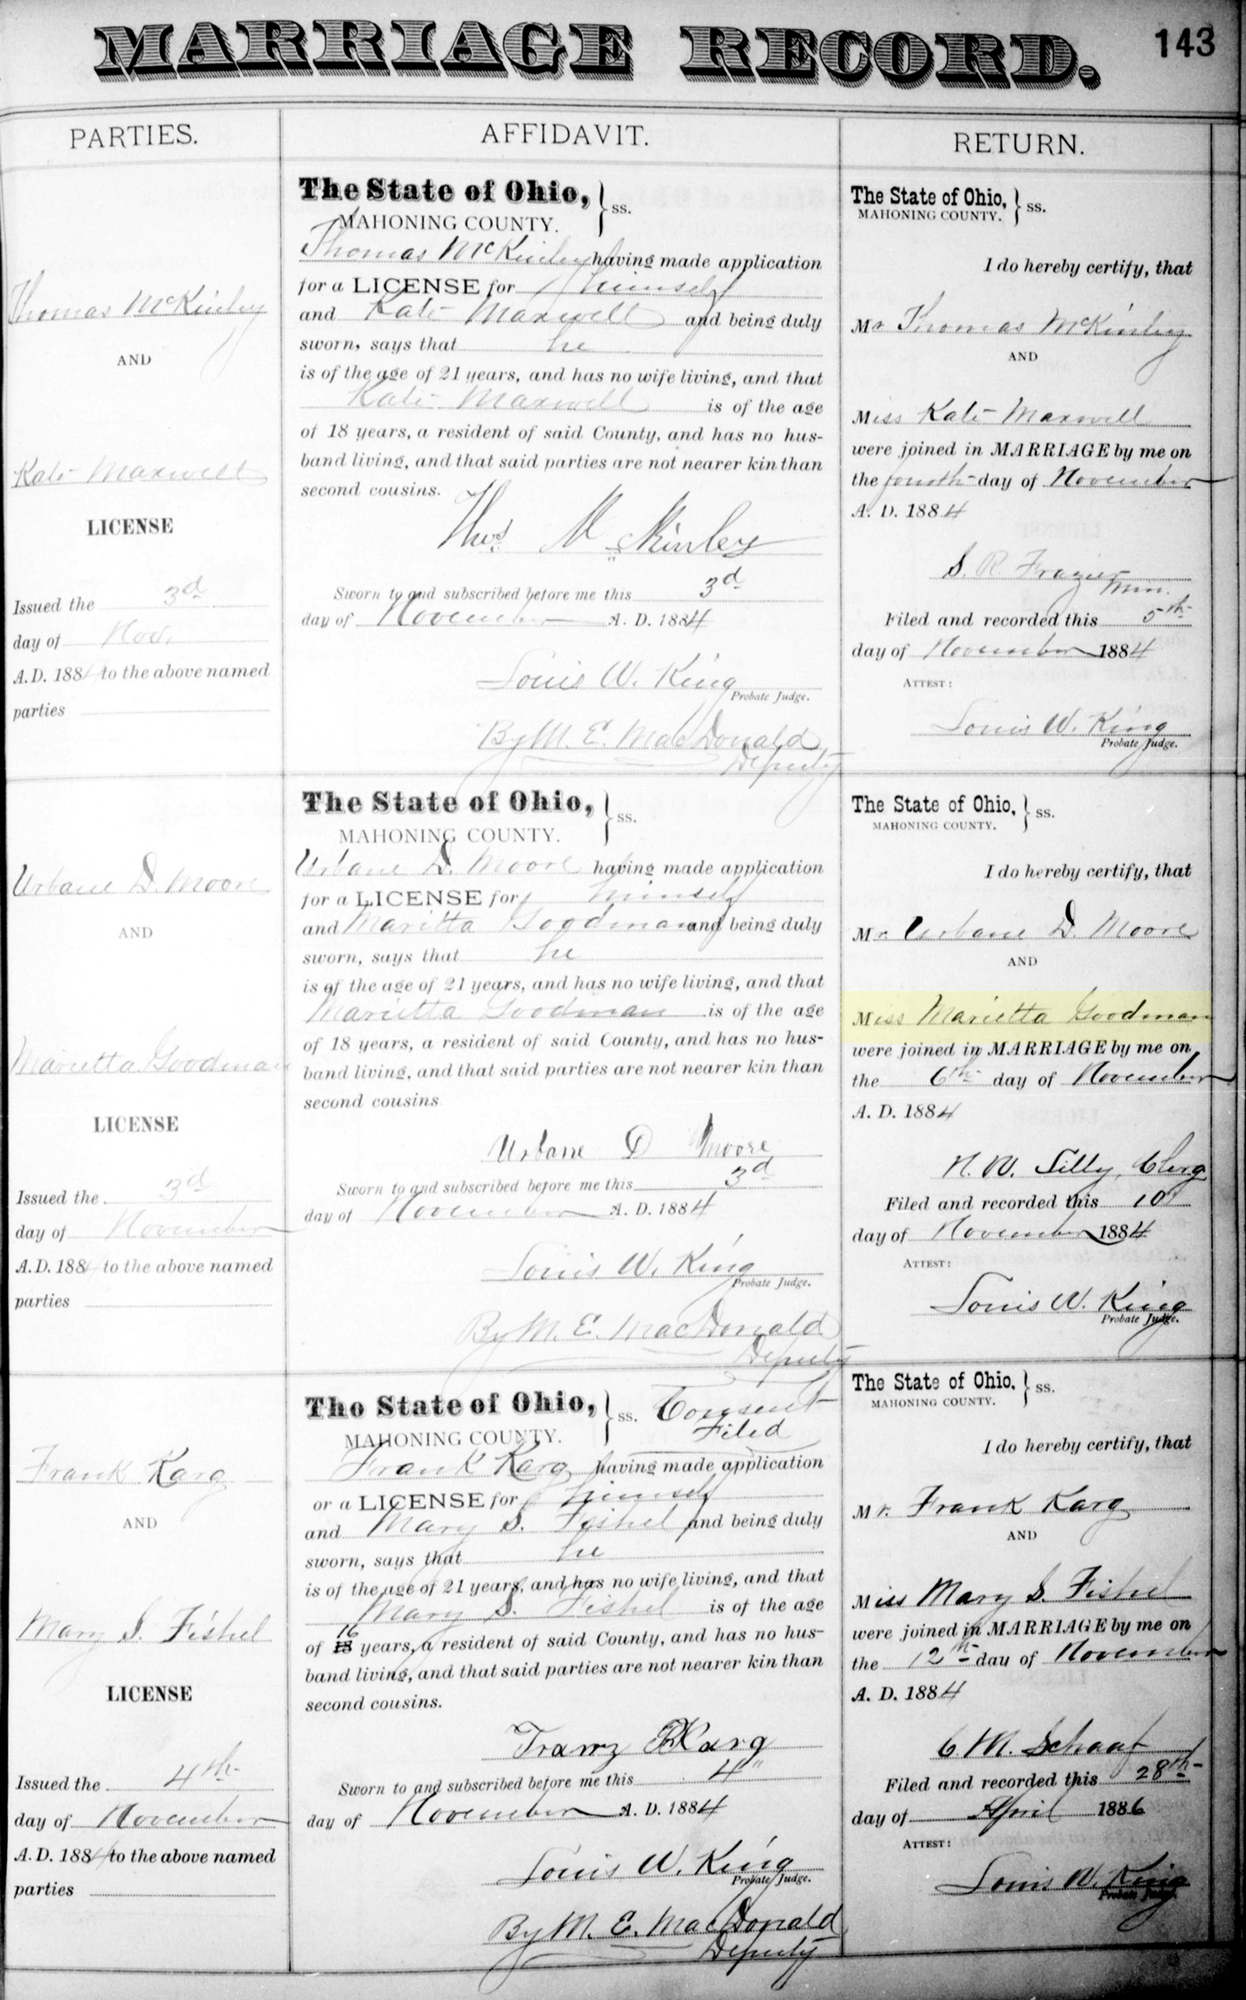 MARRIAGE RECORD.
143
PARTIES.
Thomas McKinley
AND
Kate Maxwell
LICENSE
Issued the 3d
day of Nov.
A.D. 1884 to the above named
parties
AFFIDAVIT.
The State of Ohio, } ss.
MAHONING COUNTY.
Thomas McKinley having made application
for a LICENSE for himself
and Kate Maxwell and being duly
sworn, says that he
is of the age of 21 years, and has no wife living, and that
Kate Maxwell is of the age
of 18 years, a resident of said County, and has no hus-
band living, and that said parties are not nearer kin than
second cousins.
Thos McKinley
Sworn to and subscribed before me this 3d
day of November A. D. 1884
Louis W. King
Probate Judge.
By M. E. MacDonald
Deputy
RETURN.
The State of Ohio, } ss.
MAHONING COUNTY.
I do hereby certify, that
Mr Thomas McKinley
AND
Miss Kate Maxwell
were joined in MARRIAGE by me on
the fourth day of November
A. D. 1884
S. R. Frazier
Min.
Filed and recorded this 5th
day of November 1884
ATTEST:
Louis W. King
Probate Judge.
Urbane D. Moore
AND
Marietta Goodman
LICENSE
Issued the 3d
day of November
A.D. 188 to the above named
parties
The State of Ohio, } ss.
MAHONING COUNTY.
Urbane D. Moore having made application
for a LICENSE for himself
and Maritta Goodman and being duly
sworn, says that he
is of the age of 21 years, and has no wife living, and that
Marietta Goodman is of the age
of 18 years, a resident of said County, and has no hus-
band living, and that said parties are not nearer kin than
second cousins
Urbane D Moore
Sworn to and subscribed before me this 3d
day of November A. D. 1884
Louis W. King
Probate Judge.
By M. E. MacDonald
Deputy
The State of Ohio, } ss.
MAHONING COUNTY.
I do hereby certify, that
Mr. Urbane D. Moore
AND
Miss Marietta Goodman
were joined in MARRIAGE by me on
the 6th day of November
A. D. 1884
N. W. Lilly, Clerg
Filed and recorded this 10
day of November 1884
ATTEST:
Louis W. King
Probate Judge.
Frank Karg
AND
Mary S. Fishel
LICENSE
Issued the 4th
day of November
A.D. 188 to the above named
parties
The State of Ohio, } ss. Consent
Filed
MAHONING COUNTY.
Frank Karg having made application
or a LICENSE for himself
and Mary S. Fishel and being duly
sworn, says that he
is of the age of 21 years, and has no wife living, and that
Mary S. Fishel is of the age
16
of 18 years, a resident of said County, and has no hus-
band living, and that said parties are not nearer kin than
second cousins.
Franz Karg
Sworn to and subscribed before me this 4"
day of November A. D. 1884
Louis W. King
Probate Judge.
By M. E. MacDonald
Deputy
The State of Ohio, } ss.
MAHONING COUNTY.
I do hereby certify, that
Mr. Frank Karg
AND
Miss Mary S. Fishel
were joined in MARRIAGE by me on
the 12th day of November
A. D. 1884
C M. Schaaf
Filed and recorded this 28th
day of April 1886
ATTEST:
Louis W. King
Probate Judge.